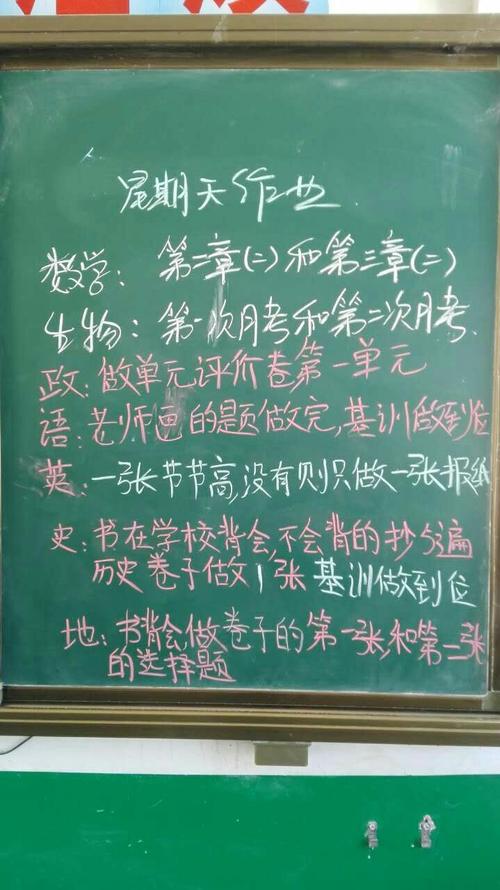 星期天作业.
数学: 第二章(二)和第三章(二)
生物: 第一次月考和第二次月考.
政: 做单元评价卷第一单元
语: 老师画的题做完,基训做到位
英: 一张节节高,没有则只做一张报纸
史: 书在学校背会,不会背的抄5遍
历史卷子做1张 基训做到位
地: 书背会,做卷子的第一张,和第二张
的选择题